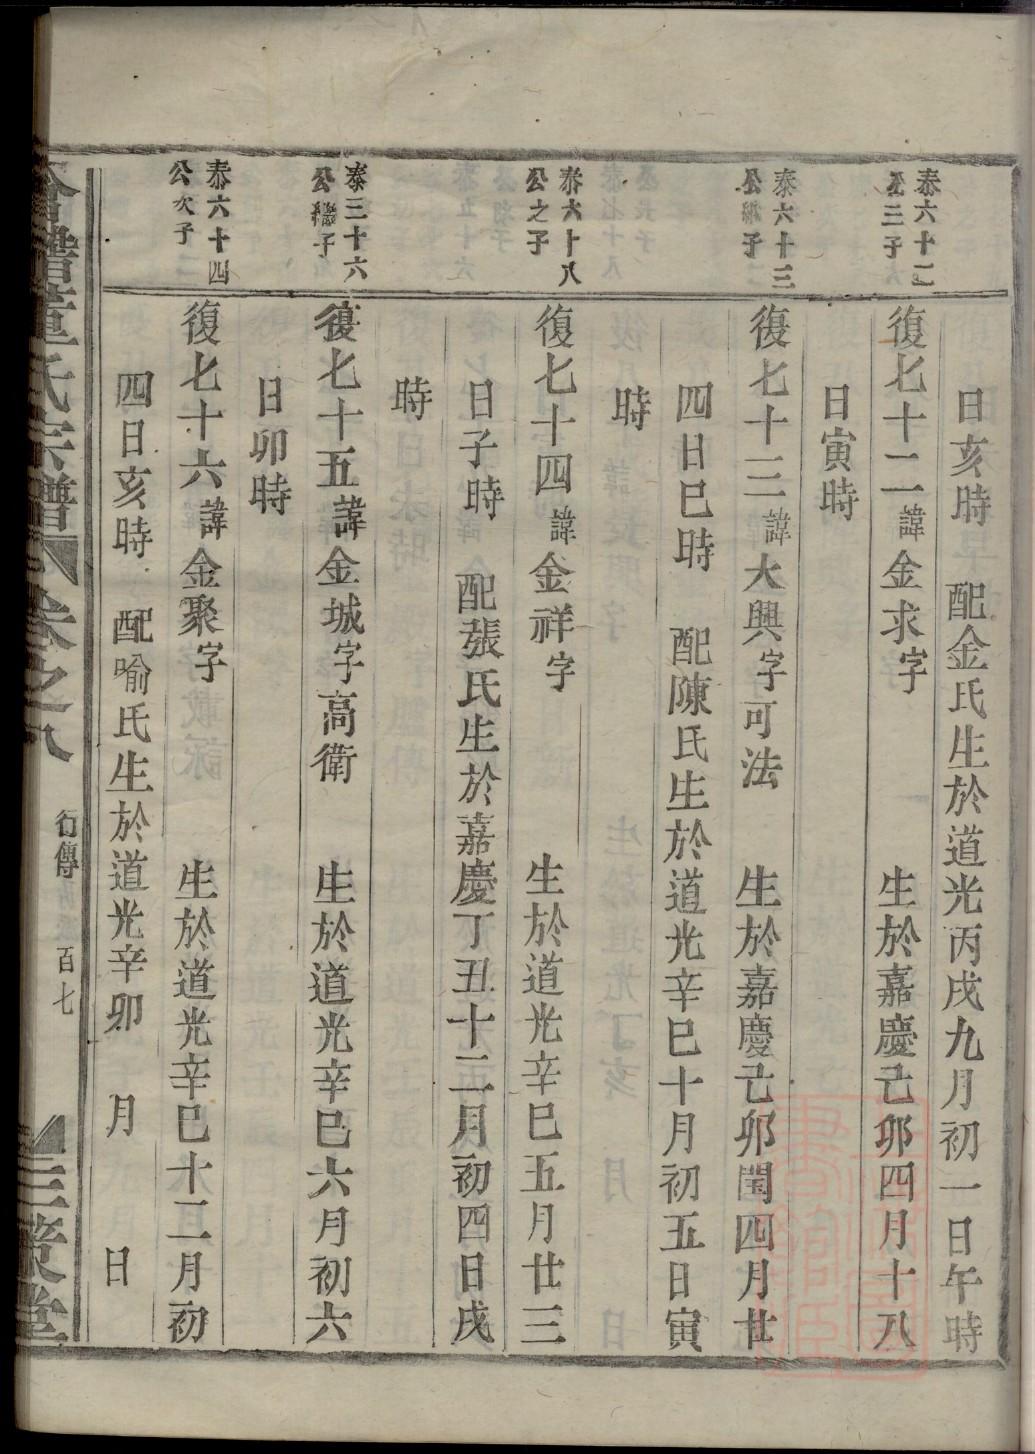 日亥時 配金氏生於道光丙戌九月初一日午時
泰六十二
公三子
復七十二諱金求字 生於嘉慶己卯四月十八
日寅時
泰六十三
公繼子
復七十三諱大興字可法 生於嘉慶己卯閏四月廿
四日巳時 配陳氏生於道光辛巳十月初五日寅
時
泰六十八
公之子
復七十四諱金祥字 生於道光辛巳五月廿三
日子時 配張氏生於嘉慶丁丑十二月初四日戌
時
泰三十六
公繼子
復七十五諱金城字高衛 生於道光辛巳六月初六
日卯時
泰六十四
公次子
復七十六諱金聚字 生於道光辛巳十二月初
四日亥時 配喻氏生於道光辛卯 月 日
譜董氏宗譜 卷之八 行傳 百七 三策堂